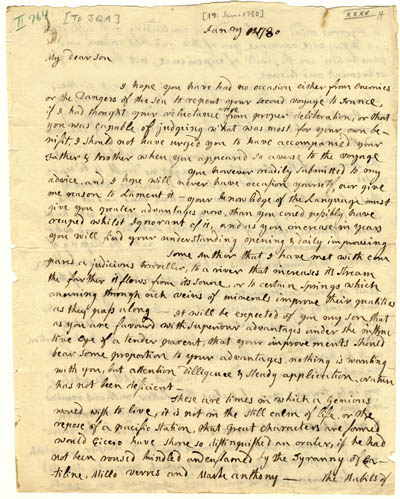 II 764 [To JQA] [19 Jan. 1780] XXXV 4
Jan'ry 12 1780
My dear son
I hope you have had no occasion either from Enemies
or the Dangers of the Sea to repent your second voyage to France.
if I had thought your reluctance arose from proper deliberation, or that
you was capable of judging what was most for your own be-
nifit, I should not have urged you to have accompanied your
Father & Brother when you appeard so averse to the voyage
you however readily submitted to my
advice, and I hope will never have occasion yourself, nor give
me reason to Lament it - your knowledge of the Language must
give you greater advantages now, than you could possibly have
reaped whilst Ignorant of it, and as you increase in years
you will find your understanding opening & daily improving
Some author that I have met with com
pares a judicious traveller, to a river that increases its stream
the farther it flows from its source, or to certain springs which
running through rich veins of minerals improve their qualities
as they pass along - it will be expected of you my son that
as you are favourd with superiour advantages under the instruc
tive Eye of a tender parent, that your improvements should
bear some proportion to your advantages, nothing is wanting
with you, but attention diligence & steady application, nature
has not been deficient -
These are times in which a Genious
would wish to live, it is not in the still calm of life, or the
repose of a pacific station, that great characters are formed
would Cicero have shone so distinguished an orater, if he had
not been roused kindled and enflamed by the Tyranny of Ca-
tiline, Millo verres and Mark anthony - the Habits of